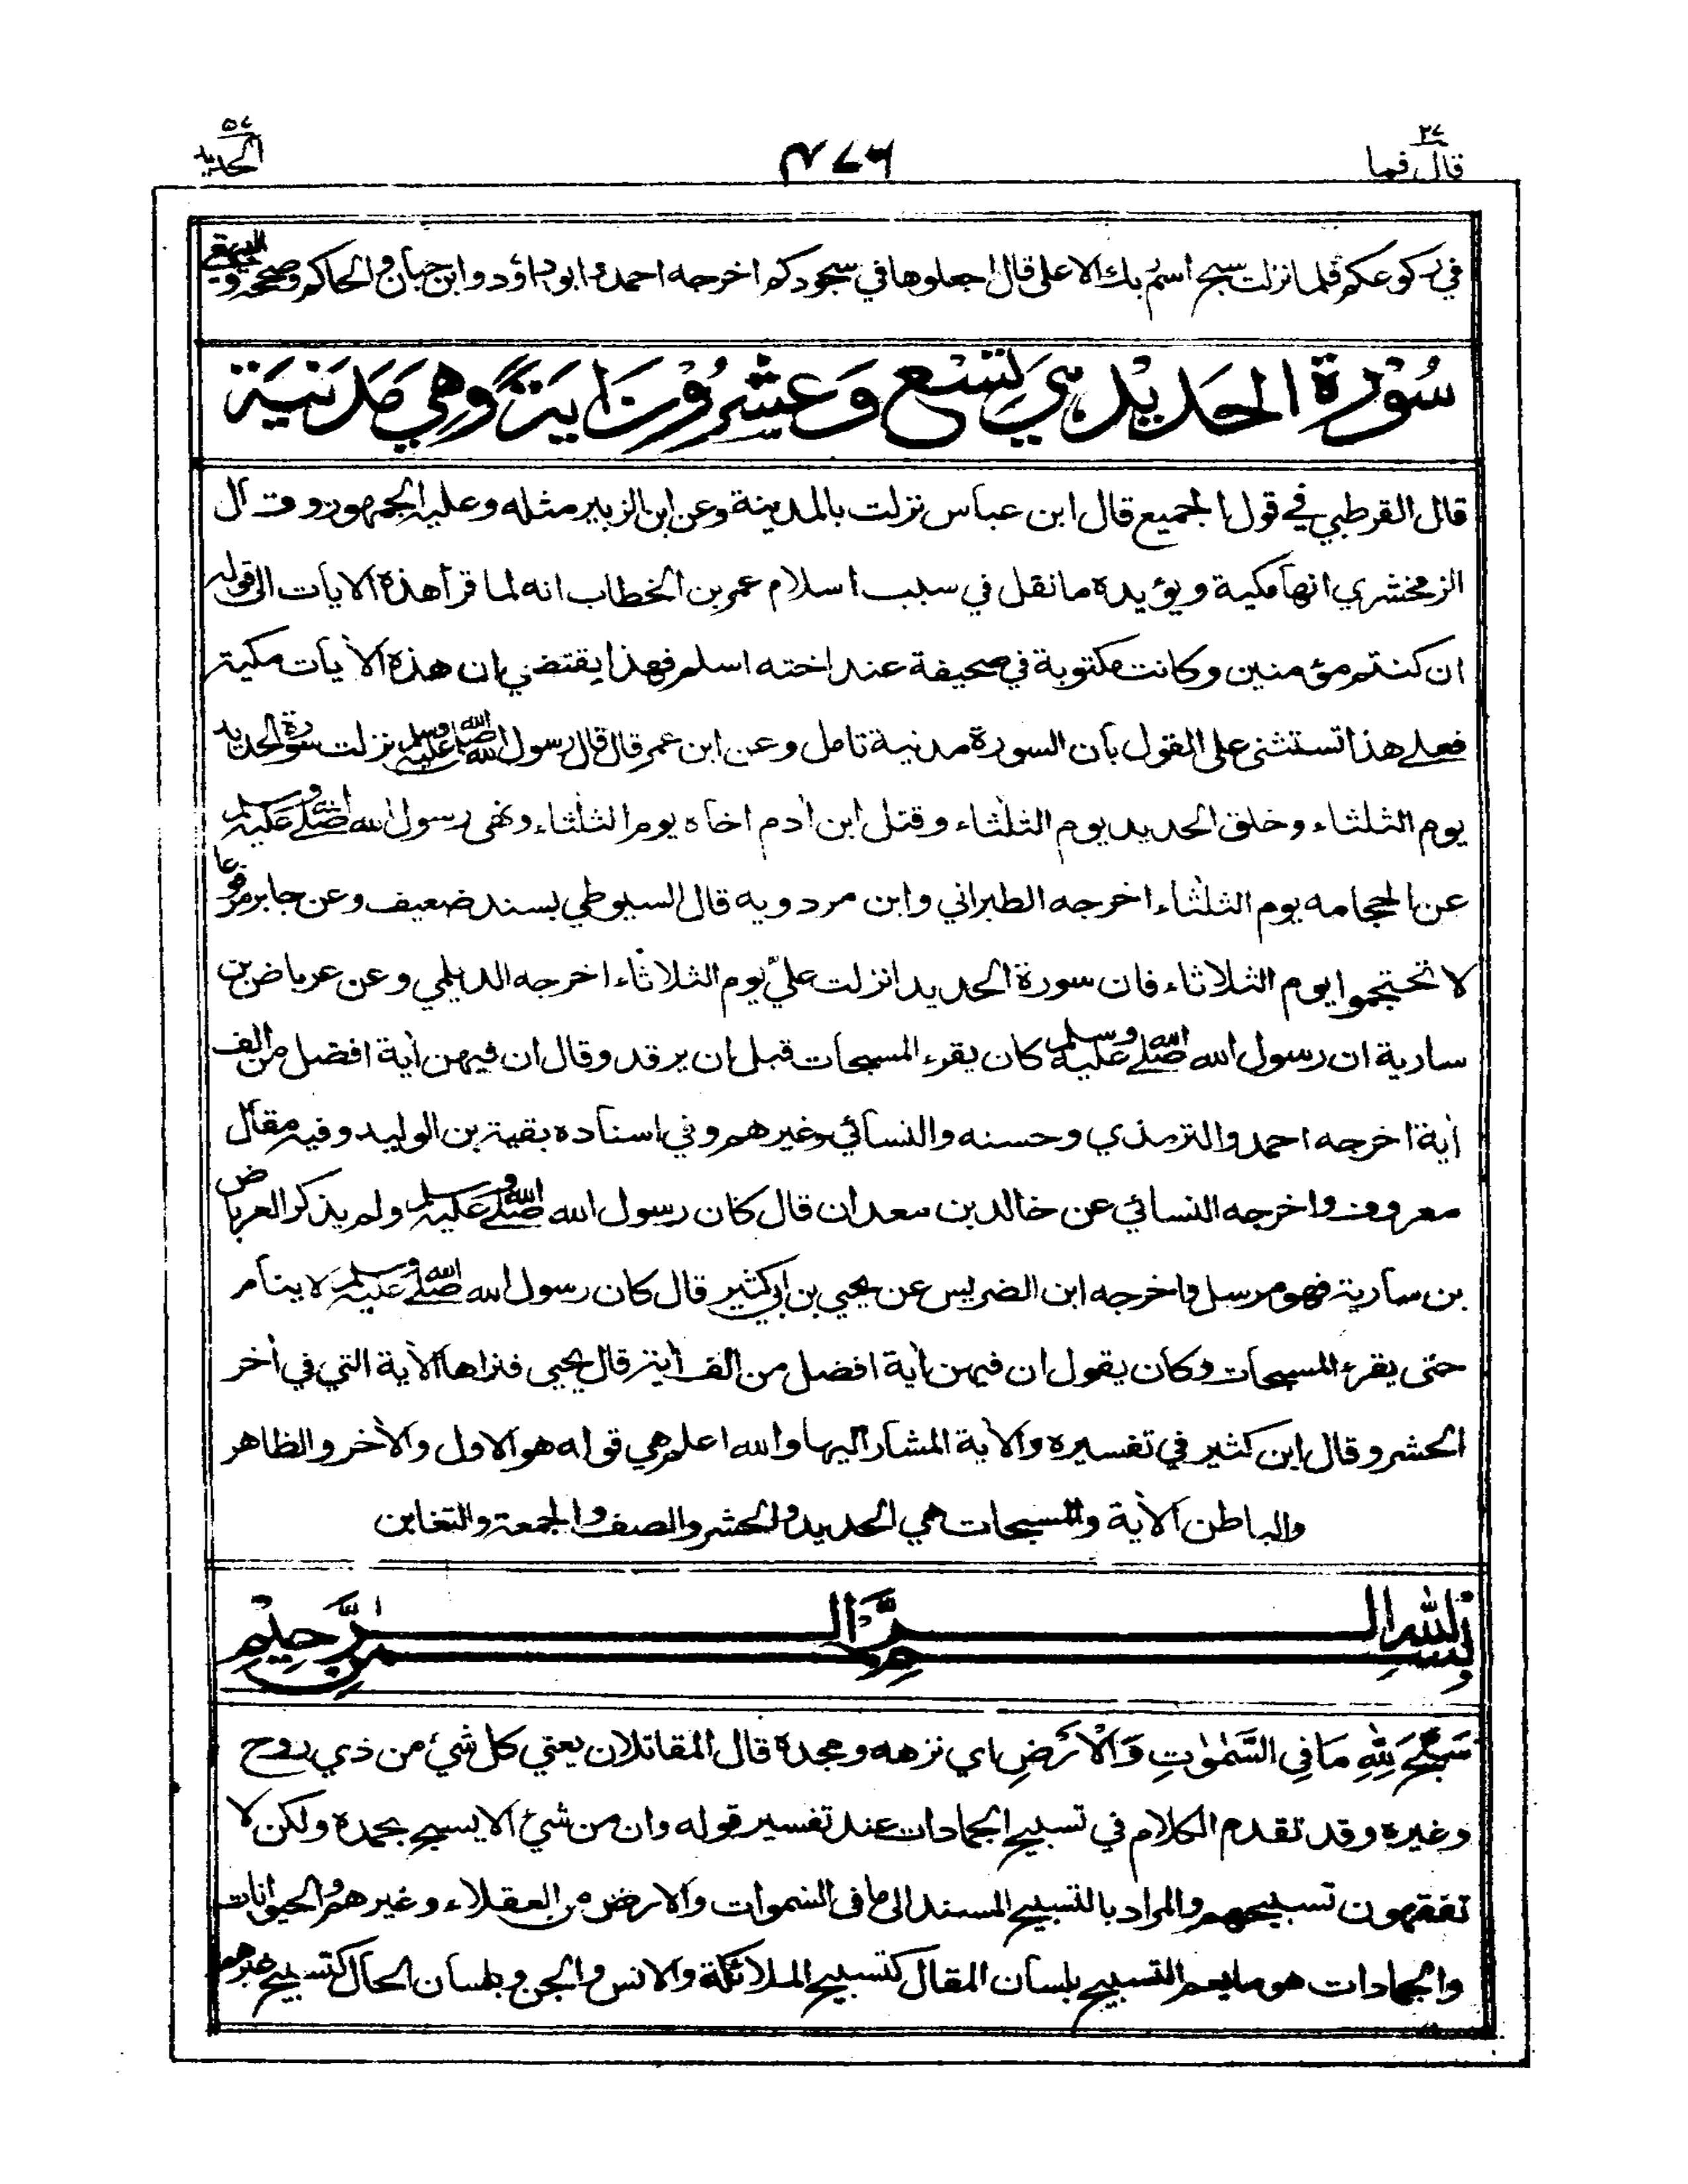 قال فما ٢٧
٤٧٦
الحديد ٥٧
في ركوعكم فلما نزلت سبح اسم ربك الاعلى قال اجعلوها في سجودكم اخرجه احمد وابو داؤد وابن حبان والحاكم وصححه والبيهقي
سُوْرة الحَدِيْد هي تِسْع وَعِشْرُوْنَ اٰيَة وهي مَدَنِيَة
قال القرطبي في قول الجميع قال ابن عباس نزلت بالمدينة وعن ابن الزبير مثله وعليه الجمهور وقال
الزمخشري انها مكية ويؤيده ما نقل في سبب اسلام عمر بن الخطاب انه لما قرأ هذه الايات الى قوله
ان كنتم مؤمنين وكانت مكتوبة في صحيفة عند اخته اسلم فهذا يقتضي ان هذه الأيات مكية
فعلى هذا تستثنى على القول بان السورة مدنية تامل وعن ابن عمر قال قال رسول الله صلى الله عليه وسلم نزلت سورة الحديد
يوم الثلثاء وخلق الحديد يوم الثلثاء وقتل ابن أدم اخاه يوم الثلثاء ونهى رسول الله صلى الله عليه وسلم
عن الحجامه يوم الثلثاء اخرجه الطبراني وابن مردويه قال السيوطي بسند ضعيف وعن جابر مرفوعا
لا تحتجموا يوم الثلاثاء فان سورة الحديد انزلت عليّ يوم الثلاثاء اخرجه الديلمي وعن عرباض بن
سارية ان رسول الله صلى الله عليه وسلم كان يقرء المسبحات قبل ان يرقد وقال ان فيهن أية افضل من الف
أية اخرجه احمد والترمذي وحسنه والنسائي وغيرهم وفي اسناده بقية بن الوليد وفيه مقال
معروف واخرجه النسائي عن خالد بن معدان قال كان رسول الله صلى الله عليه وسلم ولم يذكر العرباض
بن سارية فهو مرسل واخرجه ابن الضريس عن يحيي بن ابي كثير قال كان رسول الله صلى الله عليه وسلم لا ينام
حتى يقرء المسبحات وكان يقول ان فيهن أية افضل من الف أية قال يحيى فنراها الأية التي في أخر
الحشر وقال ابن كثير في تفسيره والأية المشار اليها والله اعلم هي قوله هو الاول والأخر والظاهر
والباطن الأية والمسبحات هي الحديد والحشر والصف والجمعة والتغابن
بِسْمِ اللهِ الرَّحْمٰنِ الرَّحِيْمِ
سَبَّحَ لِلّٰهِ مَا فِى السَّمٰوٰتِ وَالْاَرْضِ اي نزهه ومجده قال المقاتلان يعني كل شئ من ذي روح
وغيره وقد تقدم الكلام في تسبيح الجمادات عند تفسير قوله وان من شئ الا يسبح بحمده ولكن لا
تفقهون تسبيحهم والمراد بالتسبيح المسند الى ما فى السموات والارض من العقلاء وغيرهم والحيوانات
والجمادات هو ما يعم التسبيح بلسان المقال كتسبيح الملائكة والانس والجن وبلسان الحال كتسبيح غيرهم